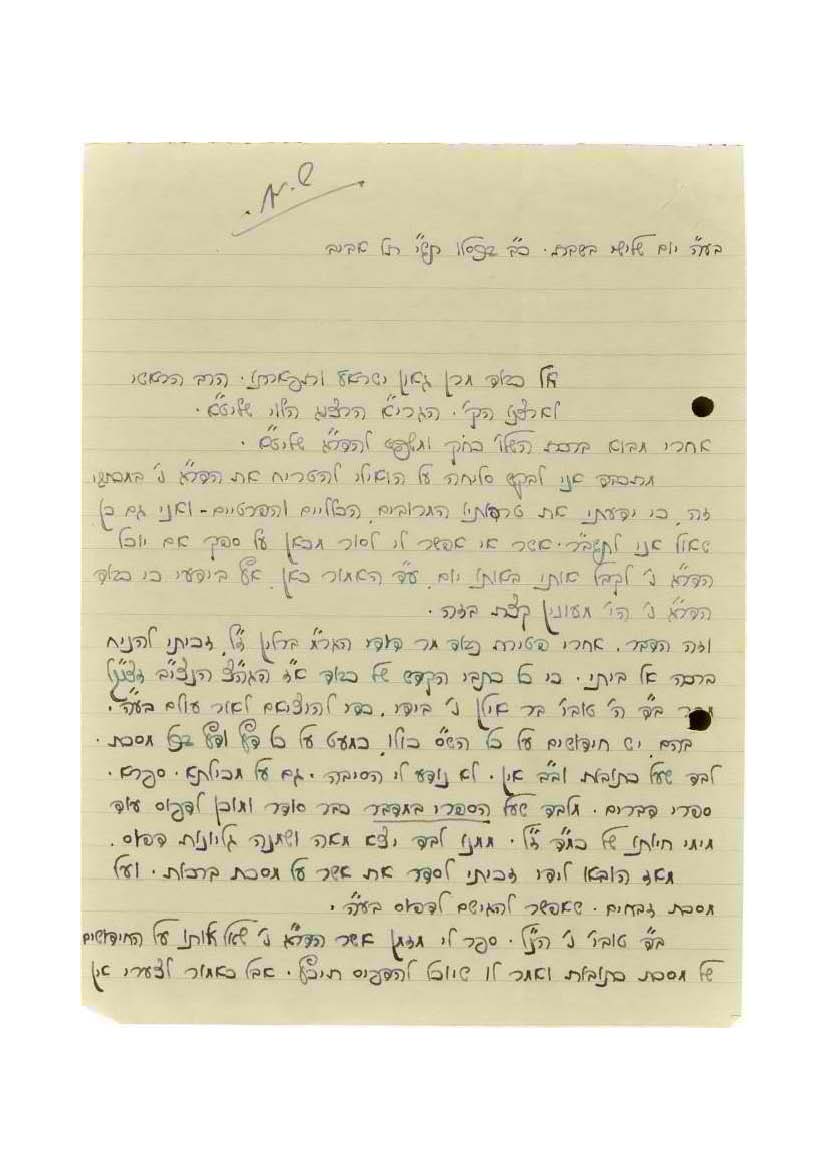 ש.א.
בעז"ה יום שלישי בשבת. כ"ב בכסלו תש"י תל אביב
אל כבוד מרן גאון ישראל ותפארתו. הרב הראשי
לארצנו הק'. הגרי"א הרצוג הלוי שליט"א.
אחרי מבוא ברכת השלו' בחק ומשפט להדר"ג שליט"א.
מתכבד אני לבקש סליחה על הואילי להטריח את הדר"ג נ' במכתבי
זה, כי ידעתי את טרדותיו המרובים, הכלליים והפרטיים - ואני גם כן
שאול אני לתשב"ר. אשר אי אפשר לי לסור מכאן על ספק אם יוכל
הדר"ג נ' לקבל אותי באותו יום, ע"ד האמור כאן, אף בידעי כי כבוד
הדר"ג נ' הי' מעונין קצת בזה.
וזה הדבר. אחרי פטירת כבוד מר דודי הגר"מ ברלין ז"ל, זכיתי להניח
ברכה אל ביתי. כי כל כתבי הקדש של כבוד א"ז הגה"צ הנצי"ב זצ"ל
מסר ב"ד ה' טובי' בר אילן נ' בידי, בכדי להוציאם לאור עולם בעה"י.
בהם יש חידושים על כל הש"ס כולו, כמעט על כל דף ודף בכל מסכת.
לבד שעל כתובות וב"ב אין. לא נודע לי הסיבה. גם על מכילתא. ספרא.
ספרי דברים. מלבד שעל הספרי במדבר כבר סודר ומוכן לדפוס עוד
מימי חיותו של כמ"ד ז"ל. ממנו לבד יצא מאה ושמנה גליונות דפוס.
מאז הובא לידי זכיתי לסדר את אשר על מסכת ברכות. ועל
מסכת זבחים. שאפשר להגישם לדפוס בעה"י.
ב"ד טובי' נ' הנ"ל. ספר לי מזמן אשר הדר"ג נ' שאל אותו על החידושים
של מסכת כתובות ואמר לו שיוכל להדפיס תיכף. אבל כאמור לצערי אין